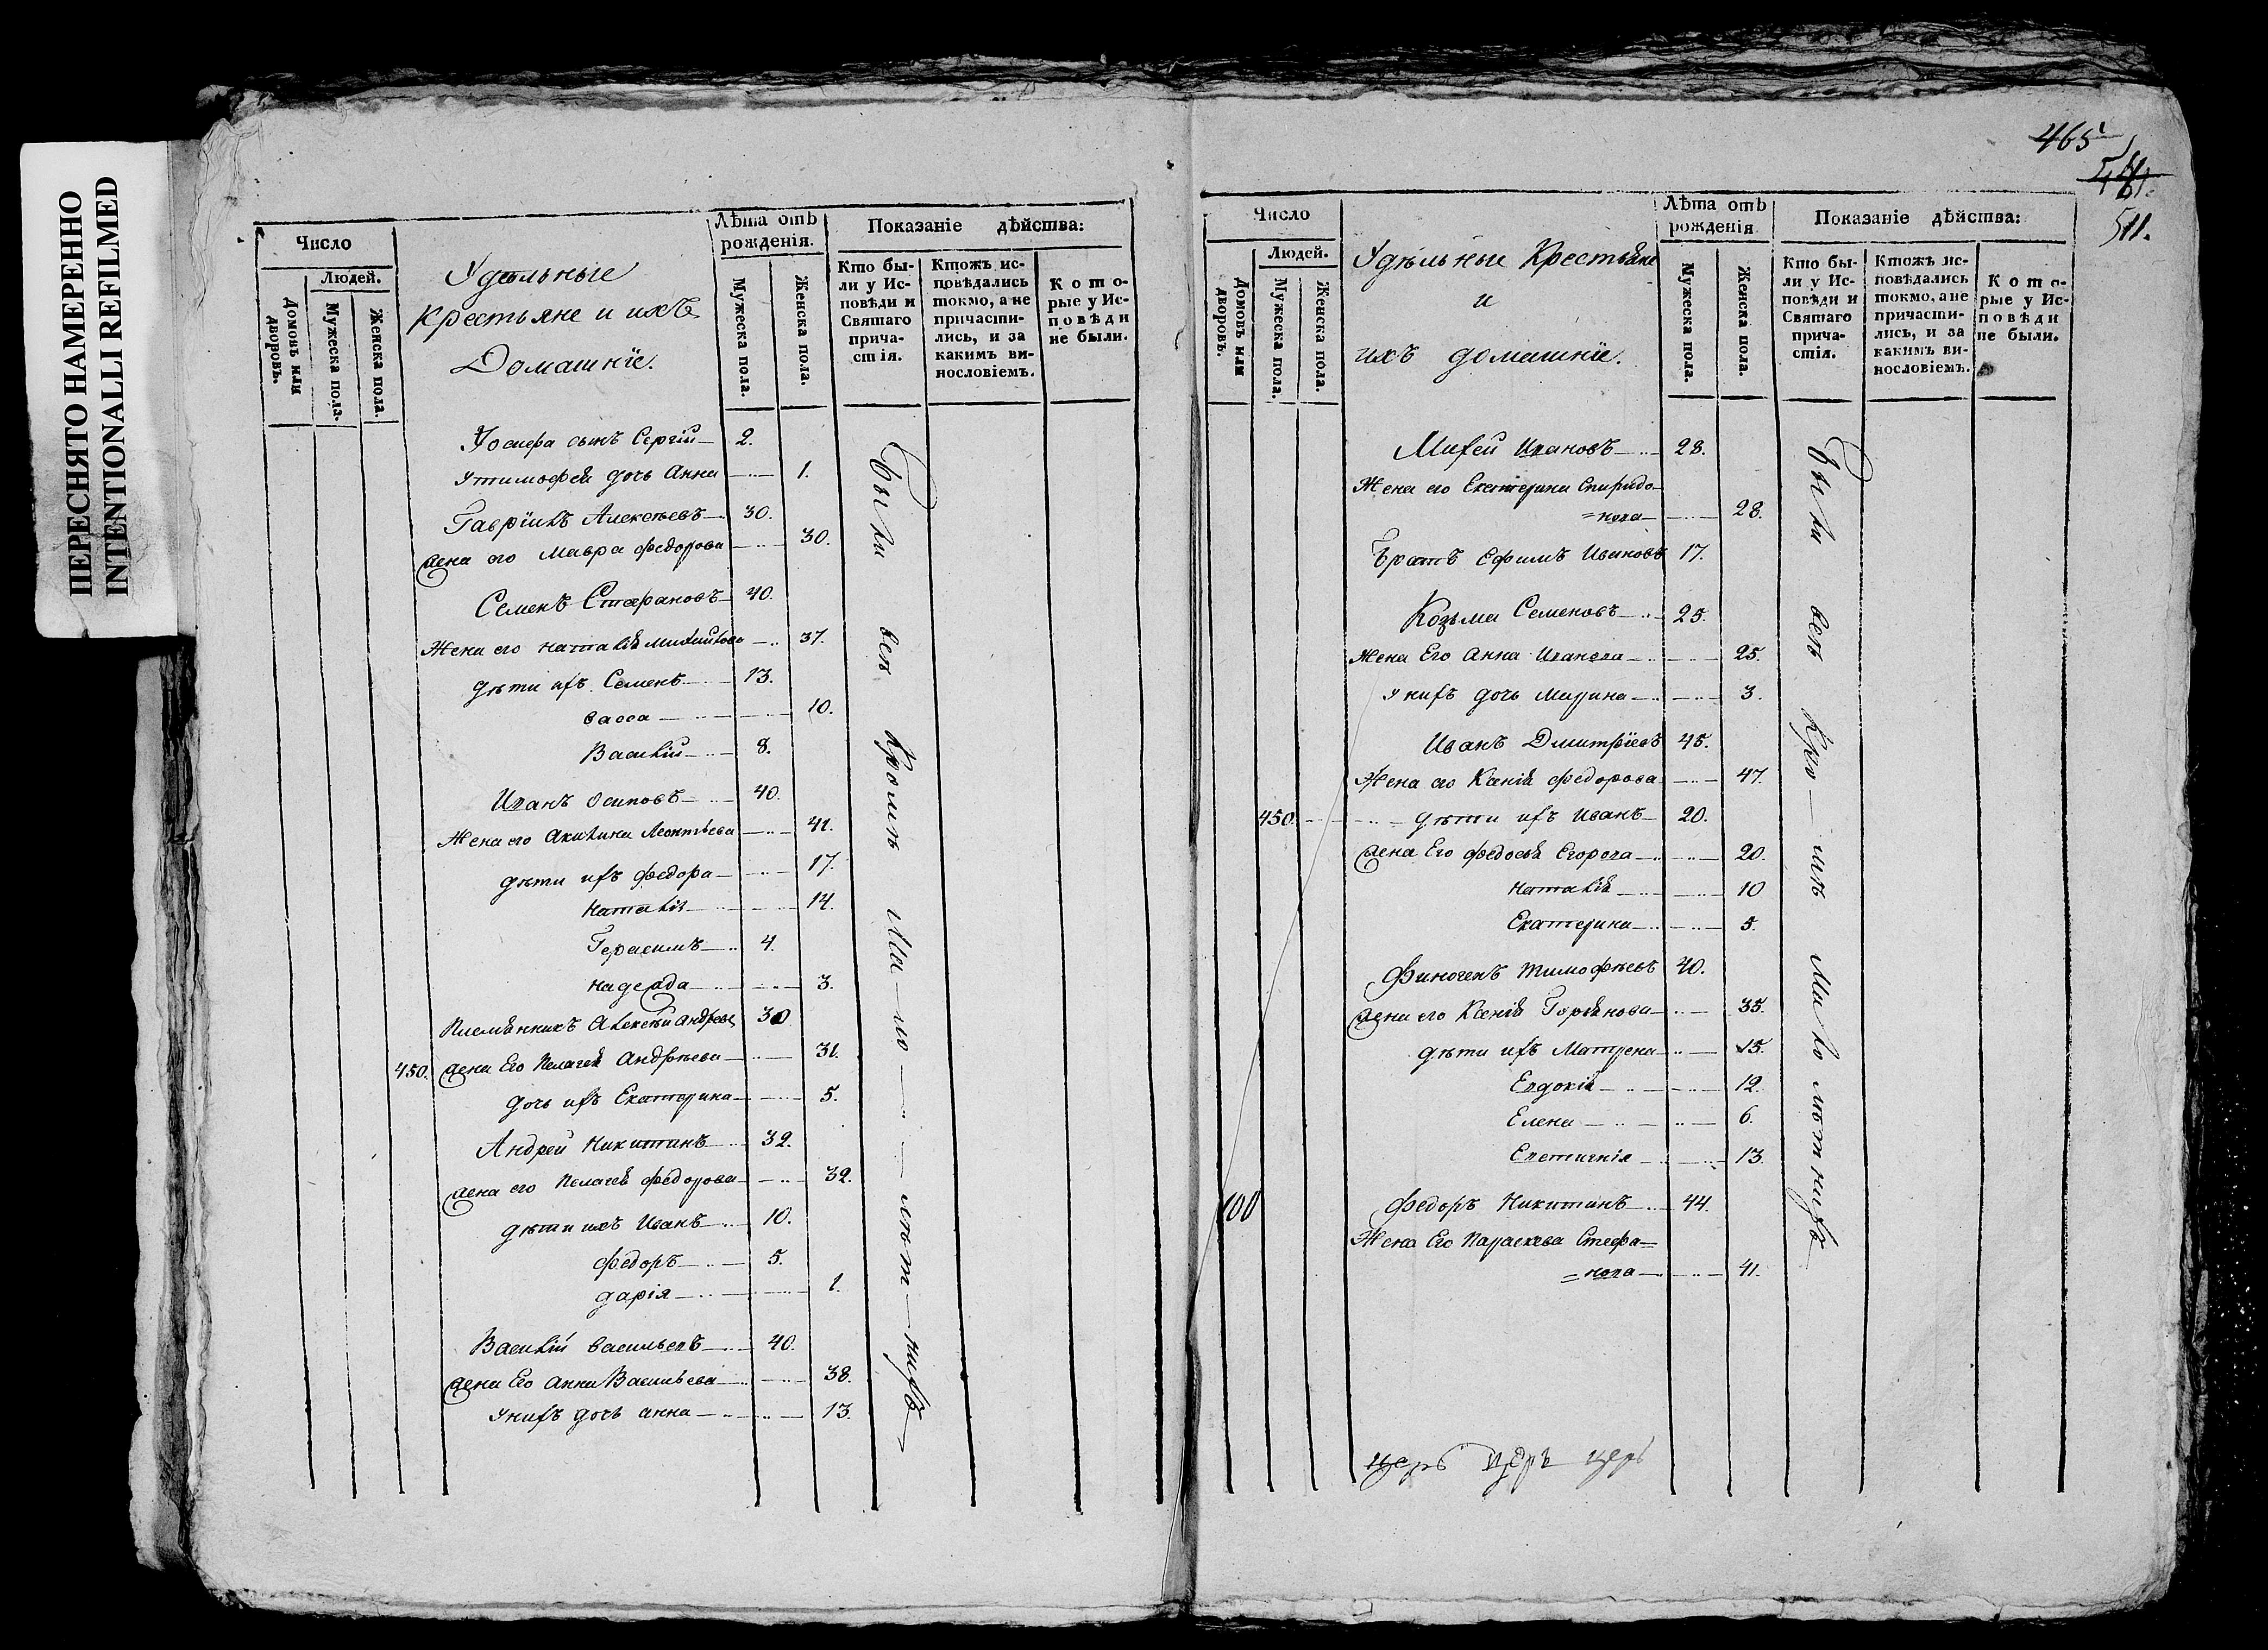 ПЕРЕСНЯТО НАМЕРЕННО
INTENTIONALLI REFILMED
Число
Людей.
Домовъ или дворовъ.
Мужеска пола.
Женска пола.
Удѣльные
Крестьяне и ихъ
Домашніе.
Лѣта отъ
рожденія.
Мужеска пола.
Женска пола.
Показаніе дѣйства:
Кто бы-
ли у Ис-
повѣди и
Святаго
прича-
стія.
Ктожъ ис-
повѣдались
токмо, а не
причасти-
лись, и за
какимъ ви-
нословіемъ.
Кото-
рые у Ис-
повѣди
не были.
сынъ Сергій 2.
У тимофея дочь Анна 1.
Гавріилъ Алексѣевъ 30.
жена его Мавра федорова 30.
Семенъ Стефановъ 40.
Жена его наталія михайлова 37.
дѣти ихъ Семенъ 13.
васса 10.
Василій 8.
Иванъ осиповъ 40.
Жена его Акилина Леонтьева 41.
дѣти ихъ федора 17.
наталія 14.
Герасимъ 4.
надежда 3.
Племянникъ Алексѣй андреевъ 30
450. жена Его Пелагея Андрѣева 31.
дочь ихъ Екатерина 5.
Андрей Никитинъ 32.
жена его Пелагея федорова 32.
дѣти ихъ Иванъ 10.
федоръ 5.
дарія 1.
Василій васильевъ 40.
жена Его анна Васильева 38.
у нихъ дочь анна 13.
Были всѣ кромѣ Ма-ло-лѣт-нихъ
465
511.
Число
Людей.
Домовъ или дворовъ.
Мужеска пола.
Женска пола.
Удѣльные Крестьяне
и
ихъ домашніе.
Лѣта отъ
рожденія
Мужеска пола.
Женска пола.
Показаніе дѣйства:
Кто бы-
ли у Ис-
повѣди и
Святаго
прича-
стія.
Ктожъ ис-
повѣдались
токмо, а не
причасти-
лись, и за
какимъ ви-
нословіемъ.
Кото-
рые у Ис-
повѣди
не были.
Михей Ивановъ 28.
Жена его Екатерина Спиридо-
=нова 28.
Братъ Ефимъ Ивановъ 17.
Козьма Семеновъ 25.
Жена Его Анна Иванова 25.
у нихъ дочь Марина 3.
Иванъ Дмитріевъ 45.
Жена его Ксенія федорова 47.
450. дѣти ихъ Иванъ 20.
жена Его федосья Егорова 20.
наталія 10
Екатерина 5.
Финогенъ тимофѣевъ 40.
жена его Ксенія 35.
дѣти ихъ Матрена 15.
Евдокія 12.
Елена 6.
13.
100 Федоръ Никитинъ 44.
Жена Его Параскева Стефа-
=нова 41.
Были всѣ Кро-мѣ Малолѣтнихъ
церь церь церь